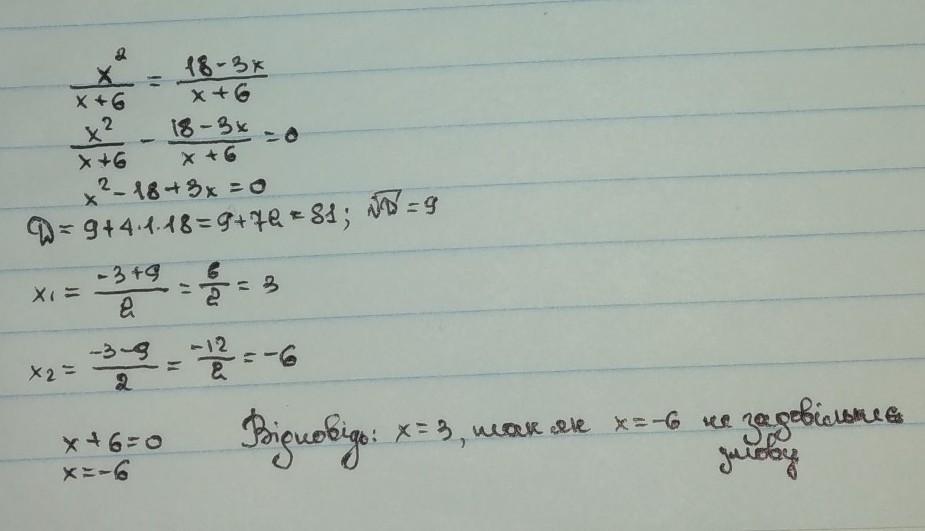 x²/(x+6) = (18-3x)/(x+6)
x²/(x+6) - (18-3x)/(x+6) = 0
x² - 18 + 3x = 0
D = 9+4·1·18 = 9+72 = 81; √D = 9
x₁ = (-3+9)/2 = 6/2 = 3
x₂ = (-3-9)/2 = -12/2 = -6
x+6=0
x=-6
Відповідь: x=3, так як x=-6 не задовільняє
умову